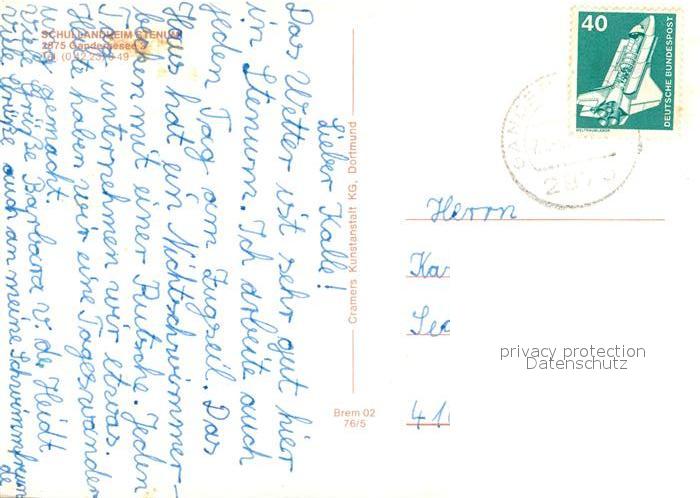 SCHULLANDHEIM STENUM
2875 Ganderkesee 2
Tel. (0 42 23)
Lieber Kalle!
Das Wetter ist sehr gut hier
in Stenum. Ich arbeite auch
jeden Tag am Zugseil. Das
Haus hat ein Nichtschwimmer-
becken mit einer Rutsche. Jeden
Tag unternehmen wir etwas.
Heute haben wir eine Tageswander
ung gemacht.
Viele Grüße Barbara v. der Heidt
Viele Grüße auch an meine Schwimmfreun
de
Cramers Kunstanstalt KG, Dortmund
Brem 02
76/5
40
DEUTSCHE BUNDESPOST
WELTRAUMLABOR
Herrn
Ka
41
privacy protection
Datenschutz